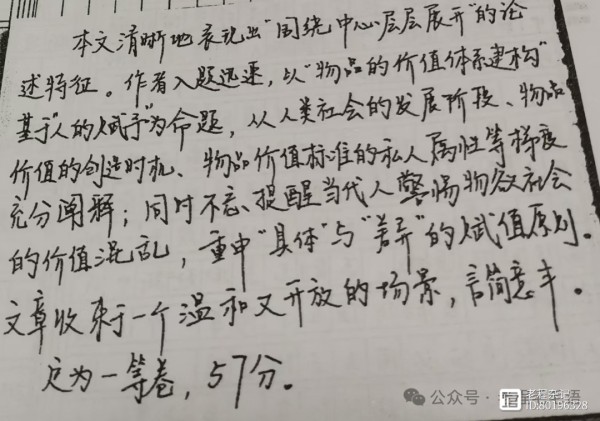 本文清晰地表现出“围绕中心层层展开”的论
述特征。作者入题迅速，以“物品的价值体系建构
基于人的赋予”为命题，从人类社会的发展阶段、物品
价值的创造时机、物品价值标准的私人属性等梯度
充分阐释；同时不忘提醒当代人警惕物欲社会
的价值混乱，重申“具体”与“差异”的赋值原则。
文章收束于一个温和又开放的场景，言简意丰。
定为一等卷，57分。
公众号·
老程杂记
ID:80196328